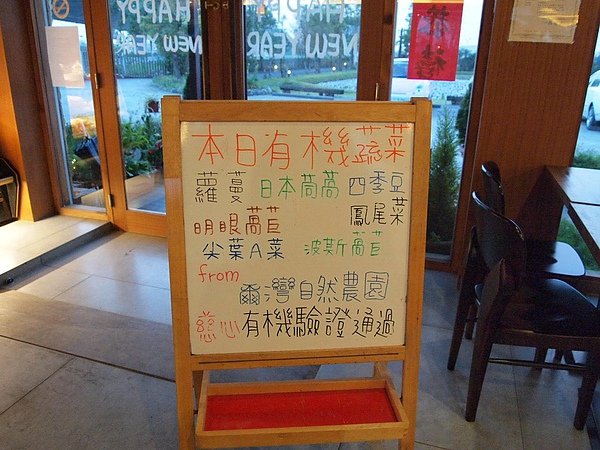 HAPPY
NEW YEAR
HAPPY
NEW YEAR
本日有機蔬菜
蘿蔓 日本萵萵 四季豆
明眼萵苣 鳳尾菜
尖葉A菜 波斯萵苣
from
爾灣自然農園
慈心有機驗證通過